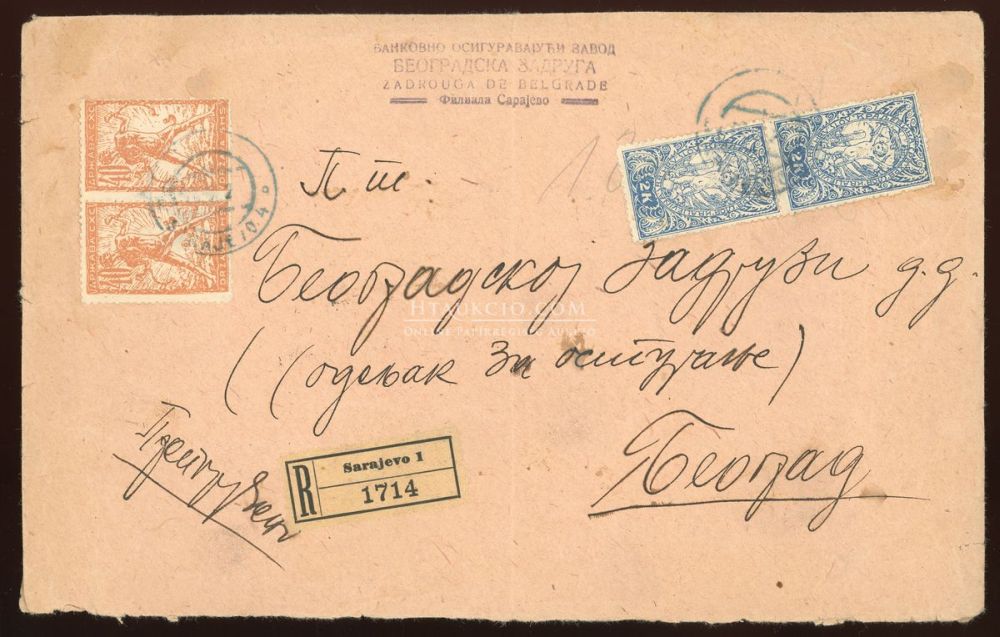 БАНКОВНО ОСИГУРАВАЈУЋИ ЗАВОД
БЕОГРАДСКА ЗАДРУГА
ZADROUGA DE BELGRADE
Филиала Сарајево
П. т.
Београдској Задрузи д.д.
(одељак за осигурање)
Београд
Препоручено
R
Sarajevo 1
1714
40
ДРЖАВА СХС
40
ДРЖАВА СХС
2K
2K
HTAUKCIO.COM
ONLINE PAPÍRRÉGISÉG AUKCIÓ